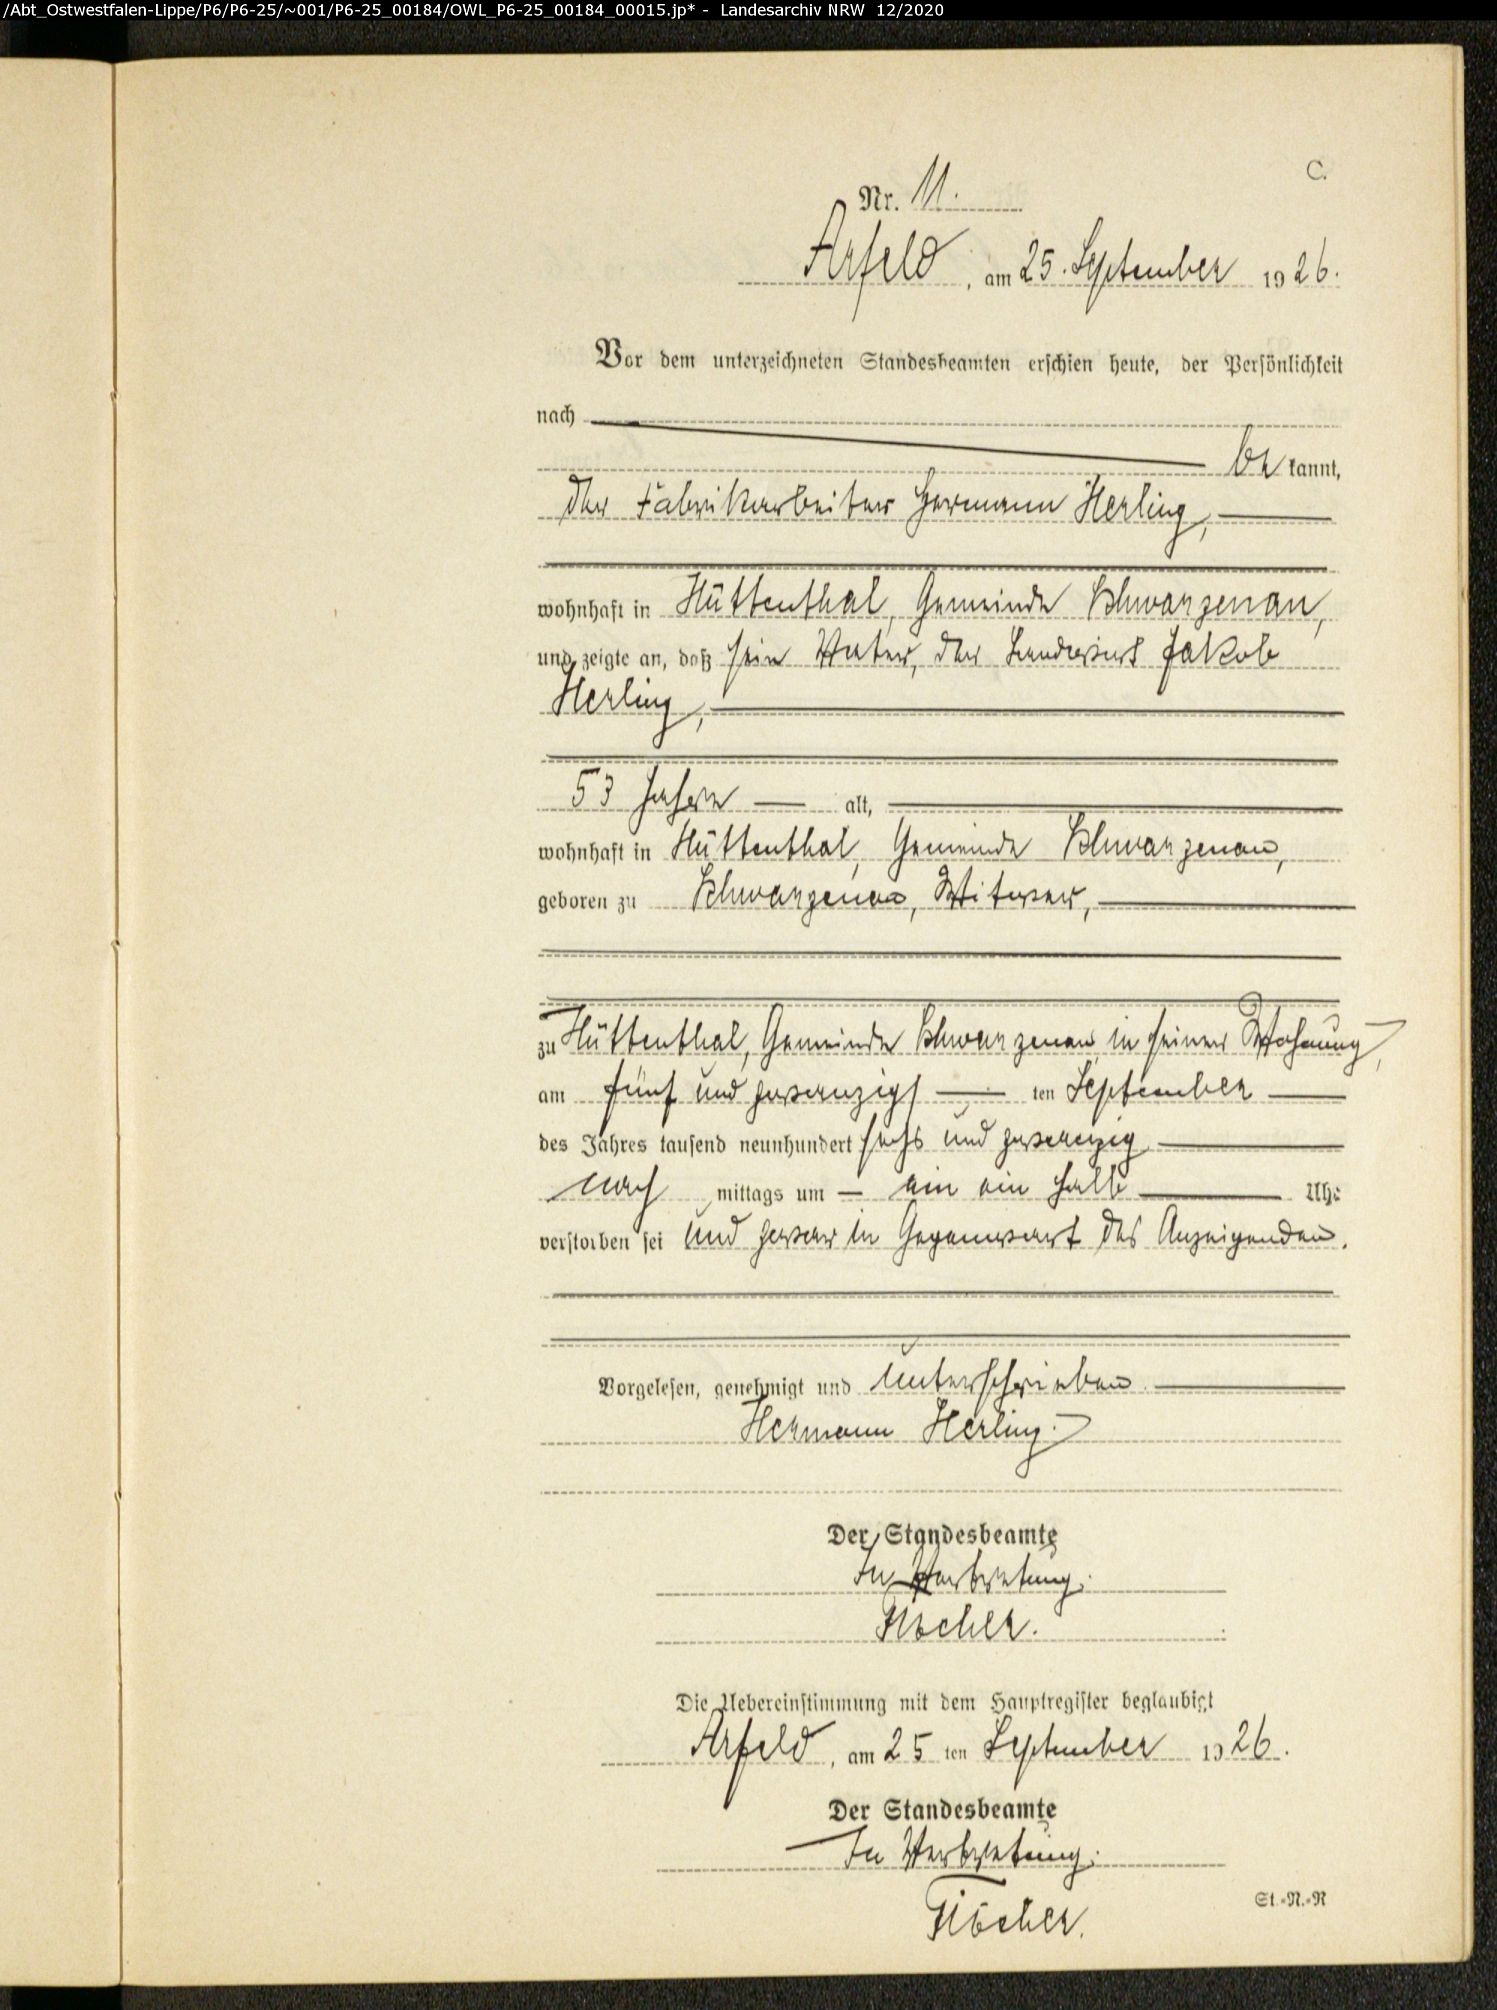 /Abt_Ostwestfalen-Lippe/P6/P6-25/~001/P6-25_00184/OWL_P6-25_00184_00015.jp* - Landesarchiv NRW 12/2020
C.
Nr. 11.
Arfeld, am 25. September 1926.
Vor dem unterzeichneten Standesbeamten erschien heute, der Persönlichkeit
nach
bekannt,
der Fabrikarbeiter Hermann Herling,
wohnhaft in Hüttenthal, Gemeinde Schwarzenau,
und zeigte an, daß sein Vater, der Landwirt Jakob
Herling,
53 Jahre alt,
wohnhaft in Hüttenthal, Gemeinde Schwarzenau,
geboren zu Schwarzenau, Witwer,
zu Hüttenthal, Gemeinde Schwarzenau in seiner Wohnung,
am fünf und zwanzigsten September
des Jahres tausend neunhundert sechs und zwanzig
nach mittags um ein ein halb Uhr
verstorben sei und zwar in Gegenwart des Anzeigenden.
Vorgelesen, genehmigt und unterschrieben
Hermann Herling.
Der Standesbeamte
In Vertretung.
Die Uebereinstimmung mit dem Hauptregister beglaubigt
Arfeld, am 25 ten September 1926.
Der Standesbeamte
In Vertretung.
St.-N.-R